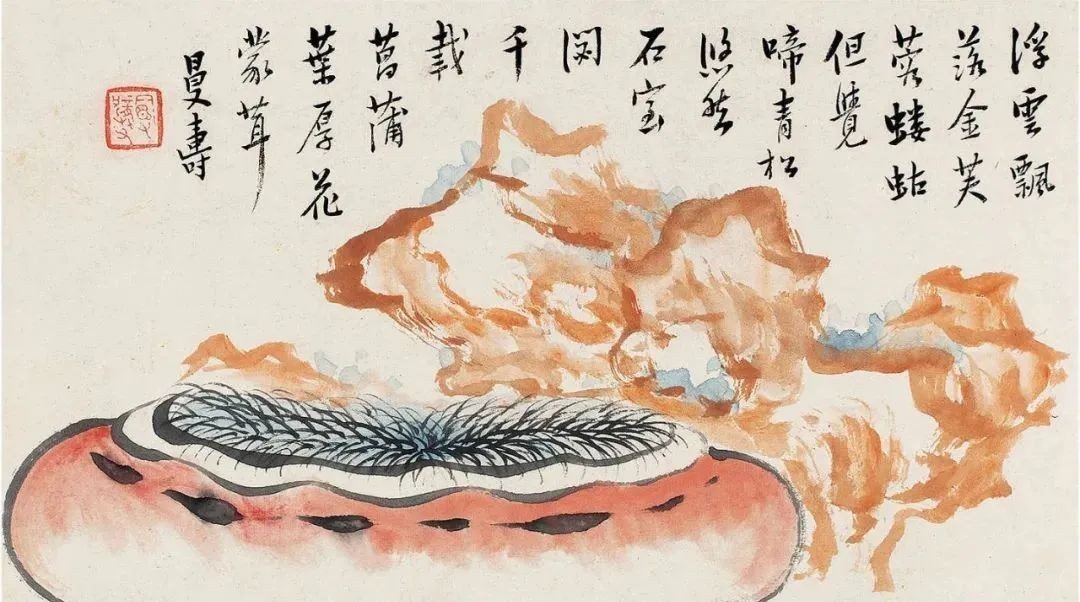 浮雲飄
落金芙
蓉螻蛄
但覺
啼青松
悠然
石室
閟
千
載
菖蒲
葉厚花
蒙茸
曼壽